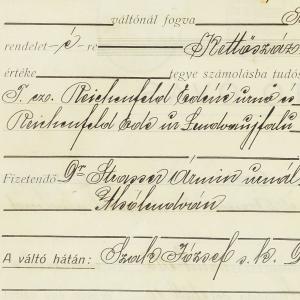 váltónál fogva
rendelet-é-re Kettőszáz
értéke tegye számolásba tudós
T. cz. Reichenfeld Edéné urnő és
Reichenfeld Ede úr Lendvaujfalu
Fizetendő Dr Strasser Ármin urnál,
Alsólendván
A váltó hátán: Szak József s. k.